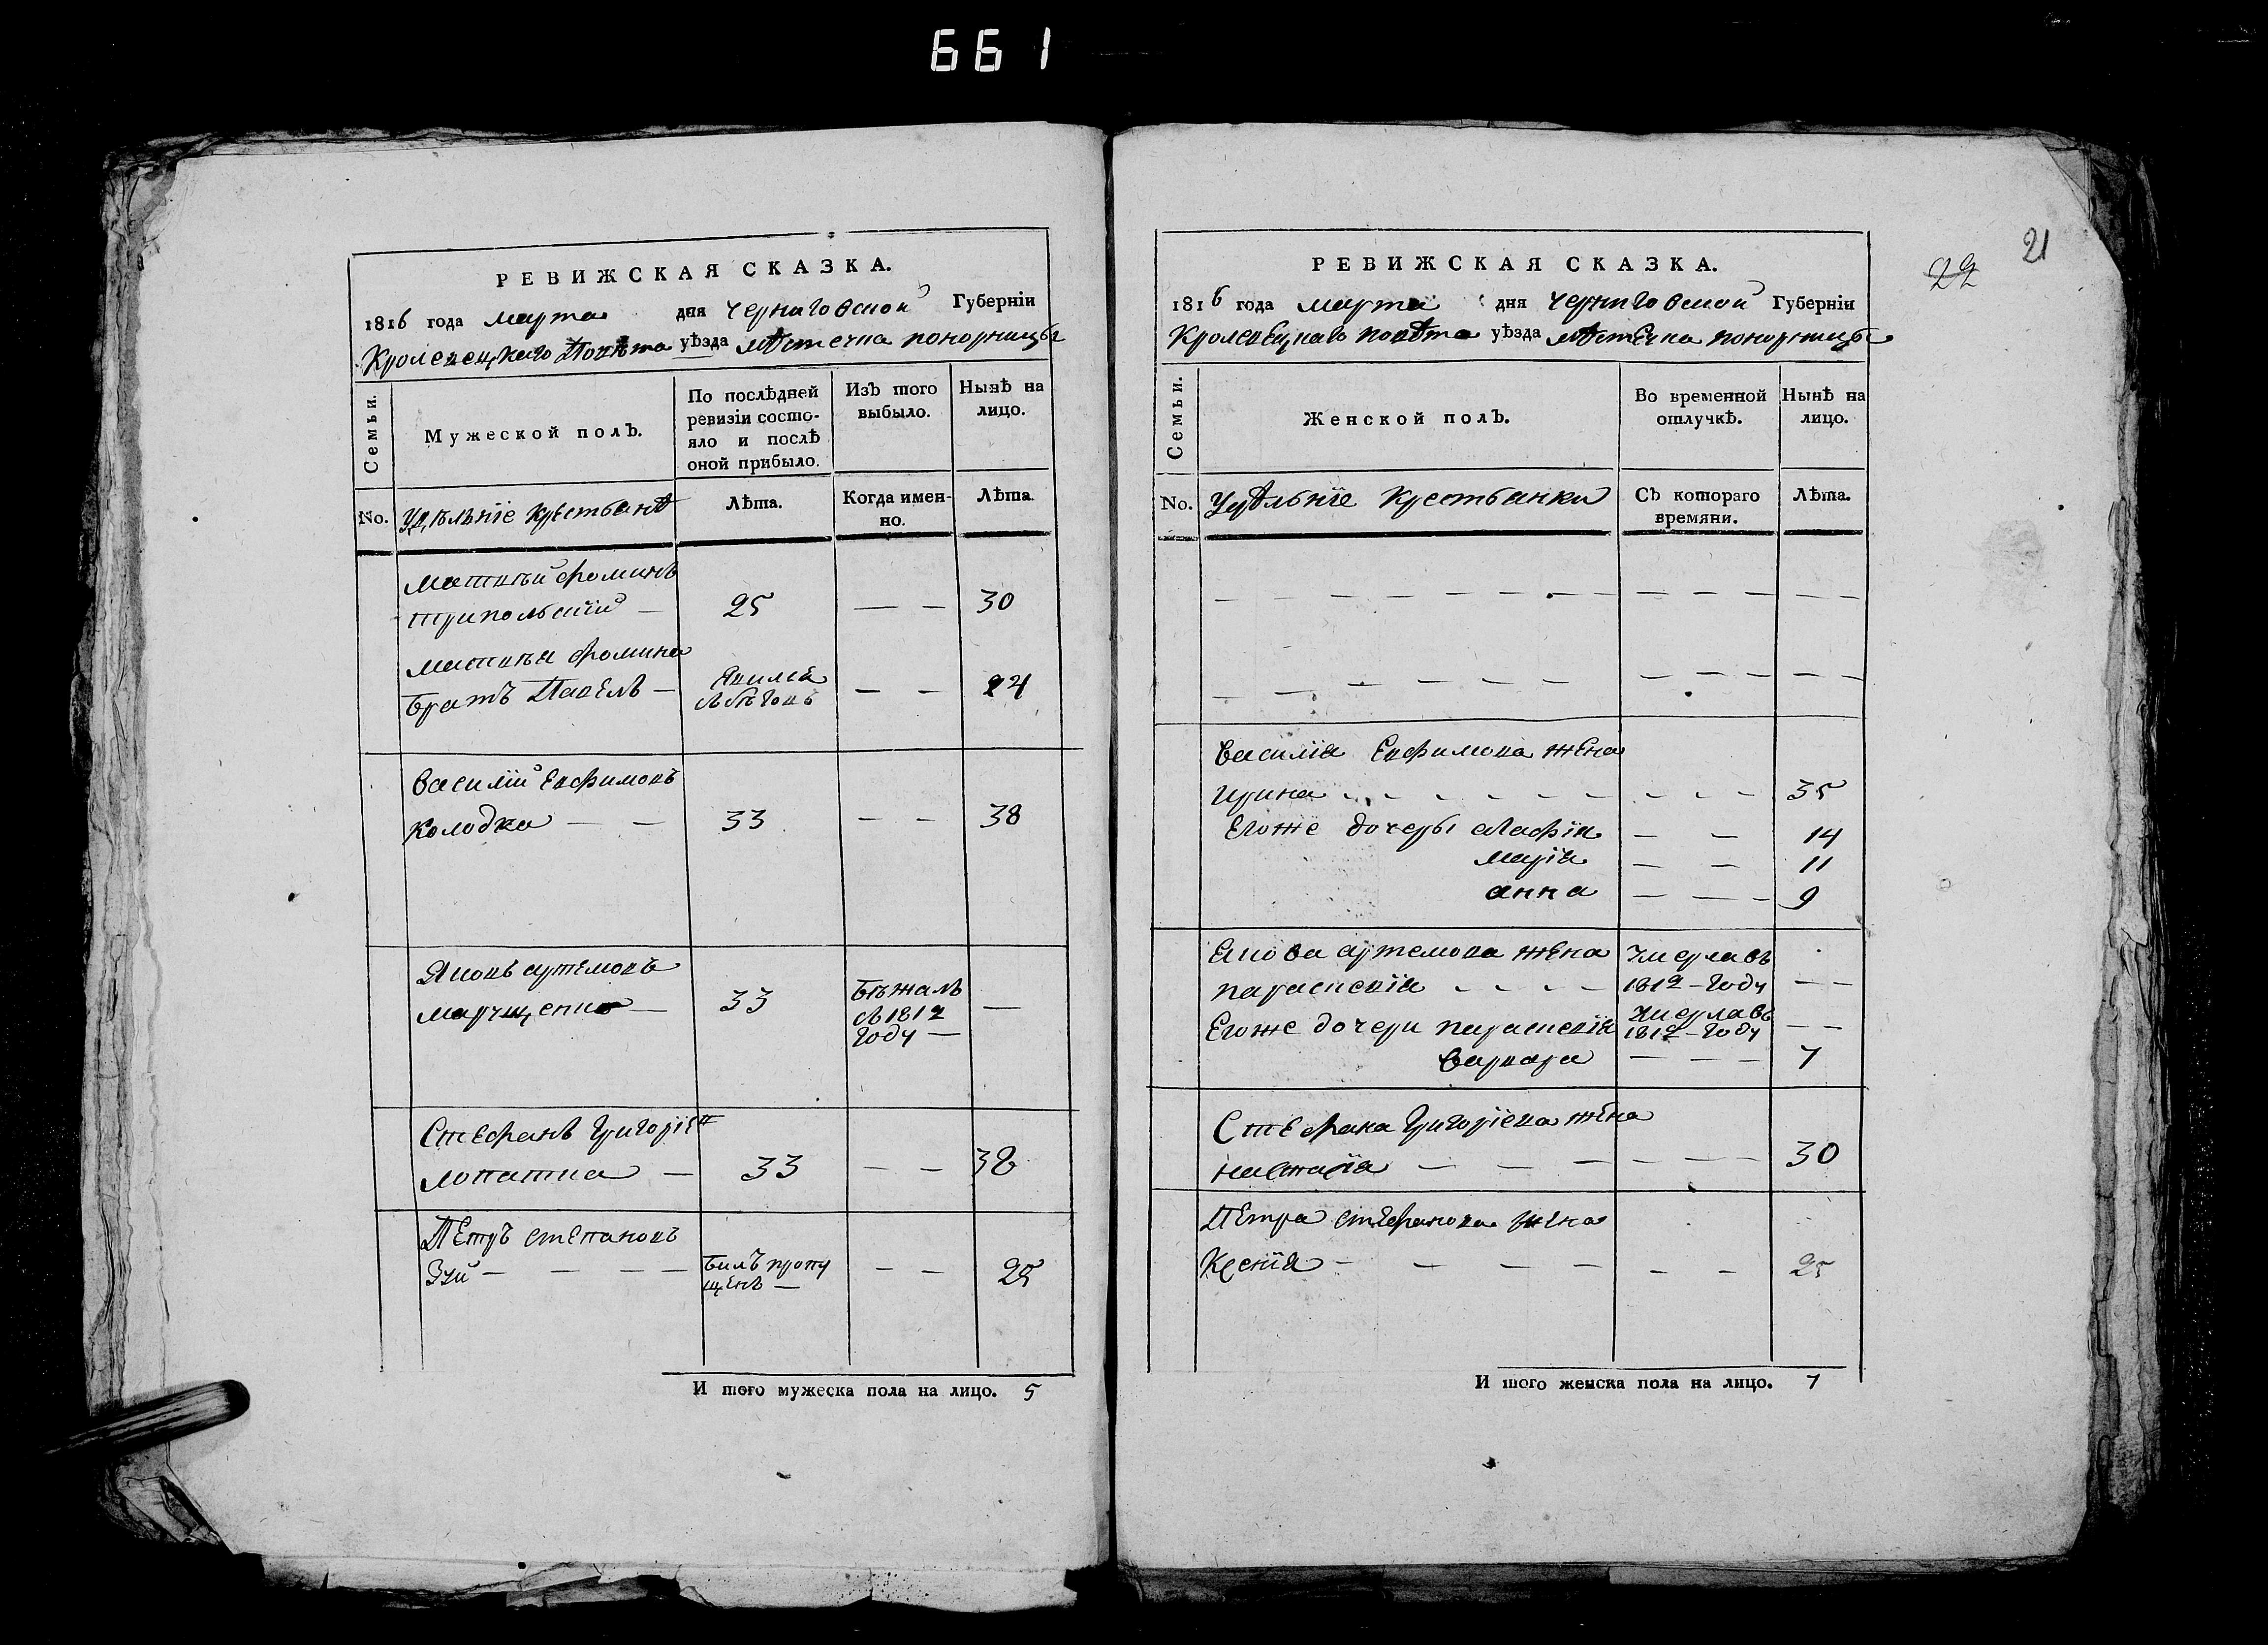 661
РЕВИЖСКАЯ СКАЗКА.
1816 года марта дня Черниговской Губерніи
Кролевецкаго Повѣта уѣзда мѣстечка понорницы
Семьи.
Мужеской полъ.
По послѣдней ревизіи состо-
яло и послѣ
оной прибыло.
Изъ того выбыло.
Нынѣ на лицо.
No.
Удѣльніе Крестьянѣ
Лѣта.
Когда имен-
но.
Лѣта.
матвѣй фоминъ
трипольскій — 25 — — 30
матвѣя фомина
братъ Павелъ — — — 24
василій Евфимовъ
Колодка — — 33 — — 38
Яковъ артемовъ
марущенко — 33 бѣжалъ
въ 1812
году — —
Стефанъ Григоріев
лопатка — 33 — — 38
Петръ степановъ
Зуй — — — — билъ пропу
щенъ — — — 25
И того мужеска пола на лицо. 5
21
22
РЕВИЖСКАЯ СКАЗКА.
1816 года марта дня Черниговской Губерніи
Кролевецкаго повѣта уѣзда мѣстечка понорницы
Семьи.
Женской полъ.
Во временной отлучкѣ.
Нынѣ на лицо.
No.
Удѣльніе Крестьянки
Съ котораго времяни.
Лѣта.
василія Евфимова жена
ирина - - - - - - - - - 35
Егоже дочеры агафія — — 14
марія — — 11
анна — — - 9
Якова артемова жена умерла въ
параскевія - - - - 1812 - году — —
Егоже дочери параскевія умерла въ 1812 - году — —
варвара — — — 7
Стефана Григоріева жена
настасія — — — — — — 30
Петра стефанова жена
Ксенія — — — — — — 25
И того женска пола на лицо. 7